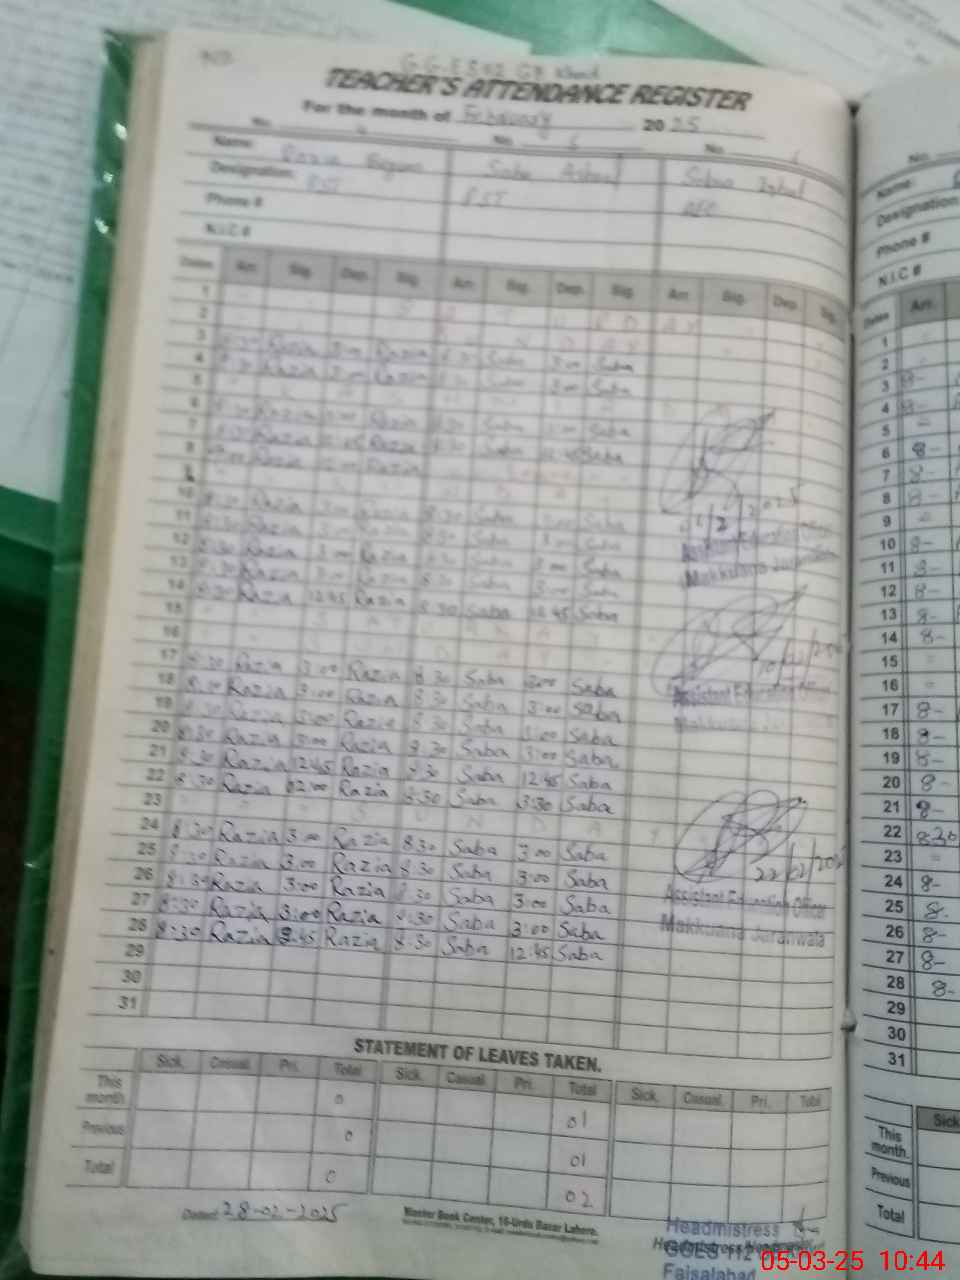 TEACHER'S ATTENDANCE REGISTER
For the month of February 2025
No. No. 6 No.
Name: Razia Begum Saba Ashraf
Designation: PST PST AEO
Phone #
N.I.C #
Dates Arr. Sig. Dep. Sig. Arr. Sig. Dep. Sig. Arr. Sig. Dep. Sig.
1
2
3 8:30 Razia 3:00 Razia 8:30 Saba 3:00 Saba
4 8:30 Razia 3:00 Razia 8:30 Saba 3:00 Saba
5
6 8:30 Razia 3:00 Razia 8:30 Saba 3:00 Saba
7 8:30 Razia 12:45 Razia 8:30 Saba 12:45 Saba
8 Razia 12:00 Razia
9
10 8:30 Razia 3:00 Razia 8:30 Saba 3:00 Saba
11 8:30 Razia 3:00 Razia 8:30 Saba 3:00 Saba
12 8:30 Razia 3:00 Razia 8:30 Saba 3:00 Saba
13 8:30 Razia 3:00 Razia Saba 3:00 Saba
14 8:30 Razia 12:45 Razia 8:30 Saba 12:45 Saba
15
16
17 8:30 Razia 3:00 Razia 8:30 Saba 3:00 Saba
18 8:30 Razia 3:00 Razia 8:30 Saba 3:00 Saba
19 8:30 Razia 3:00 Razia 8:30 Saba 3:00 Saba
20 8:30 Razia 3:00 Razia 8:30 Saba 3:00 Saba
21 8:30 Razia 12:45 Razia 8:30 Saba 12:45 Saba
22 8:30 Razia 02:00 Razia 8:30 Saba 3:30 Saba
23 S U N D A Y
24 8:30 Razia 3:00 Razia 8:30 Saba 3:00 Saba
25 8:30 Razia 3:00 Razia 8:30 Saba 3:00 Saba
26 8:30 Razia 3:00 Razia 8:30 Saba 3:00 Saba
27 8:30 Razia 3:00 Razia 8:30 Saba 3:00 Saba
28 8:30 Razia Razia 8:30 Saba 12:45 Saba
29
30
31
Assistant Education Officer
Makkuana Jaranwala
Assistant Education Officer
22/02/2025
Assistant Education Officer
Makkuana Jaranwala
STATEMENT OF LEAVES TAKEN.
Sick. Casual. Pri. Total Sick. Casual. Pri. Total Sick. Casual. Pri. Total
This month 0 01
Previous 0 01
Total 0 02
Dated: 28-02-2025
Master Book Center, 16-Urdu Bazar Lahore.
Headmistress
Faisalabad
No.
Name:
Designation
Phone #
N.I.C #
Dates Arr.
1
2
3 8-
4 8-
5
6 8-
7 8-
8 8-
9
10 8-
11 8-
12 8-
13 8-
14 8-
15
16
17 8-
18 8-
19 8-
20 8-
21 8-
22 8:30
23
24 8-
25 8-
26 8-
27 8-
28 8-
29
30
31
Sick
This month.
Previous
Total
05-03-25 10:44